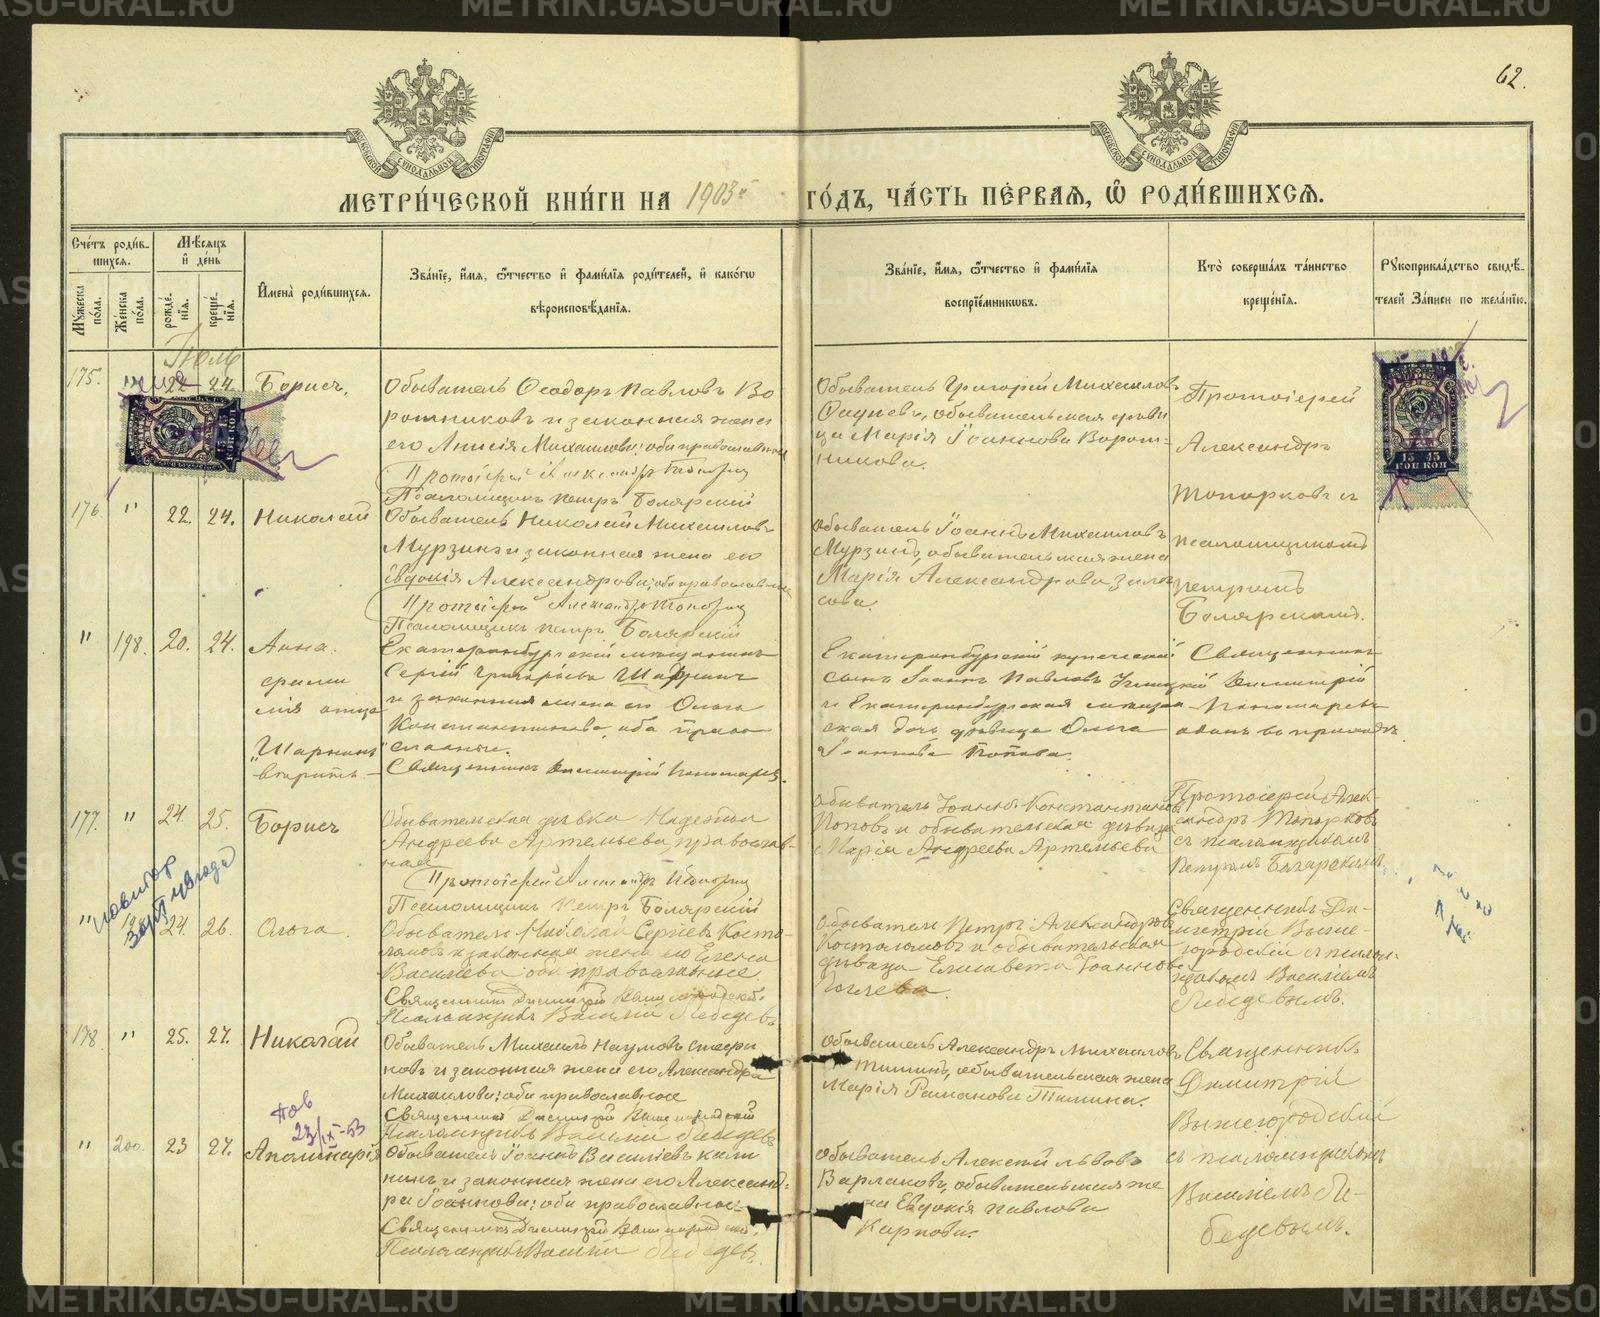 METRIKI.GASO-URAL.RU
62.
МЕТРИЧЕСКОЙ КНИГИ НА 1903й ГОДЪ, ЧАСТЬ ПЕРВАЯ, Ѿ РОДИВШИХСЯ.
Счетъ родившихся.
Мужеска пола.
Женска пола.
Мѣсяцъ и день
рожденія.
крещенія.
Имена родившихся.
Званіе, имя, ѿтчество и фамилія родителей, и какогѡ вѣроисповѣданія.
Званіе, имя, ѿтчество и фамилія воспріемникѡвъ.
Кто совершалъ таинство крещенія.
Рукоприкладство свидѣтелей записи по желанію.
Июль
175. " 22 24. Борисъ,
Обыватель Ѳеодоръ Павловъ Во
ротниковъ и законная жена
его Анисія Михаилова; оба православные
Протоіерей Александръ Топорковъ
Псаломщикъ Петръ Болярскій
Обыватель Григорій Михаиловъ
обывательская дѣви
ца Марія Іоаннова Ворот-
никова.
Протоіерей
Александръ
Топорковъ съ
псаломщикомъ
Петромъ
Болярскимъ.
15 15
КОП КОП
176. " 22. 24. Николай
Обыватель Николай Михаиловъ
Мурзинъ и законная жена его
Евдокія Александрова; оба православные
Протоіерей Александръ Топорковъ
Псаломщикъ Петръ Болярскій
Обыватель Іоаннъ Михаиловъ
Мурзинъ, обывательская жена
Марія Александрова
" 198. 20. 24. Анна.
отца
Шарнинъ
Екатеринбургскій мѣщанинъ
Сергій Григорьевъ
и законная жена его Ольга
Константинова, оба право
славные.
Священникъ Димитрій Пономаревъ.
Екатеринбургскій купеческій
сынъ Іоаннъ Павловъ
и Екатеринбургская мѣщан
ская дочь дѣвица Ольга
Іоаннова Попова.
Священникъ
Димитрій
Пономаревъ
одинъ
177. " 24. 25. Борисъ
Обывательская дѣвка Надежда
Андреева Артемьева, православ-
ная
Протоіерей Александръ Топорковъ
Псаломщикъ Петръ Болярскій
Обыватель Іоаннъ Константиновъ
Поповъ и обывательская дѣвица
Марія Андреева Артемьева
Протоіерей Алек-
сандръ Топорковъ
съ псаломщикомъ
Петромъ Болярскимъ.
повтор
" 24. 26. Ольга.
Обыватель Николай Сергіевъ Косто-
ломовъ и законная жена его Елена
Василіева оба православные.
Священникъ Димитрій Вышегородскій.
Псаломщикъ Василій Лебедевъ
Обыватель Петръ Александровъ
Костоломовъ и обывательская
дѣвица Елисавета Іоаннова
Священникъ Ди-
митрій Выше-
городскій съ псалом-
щикомъ Василіемъ
Лебедевымъ.
178. " 25. 27. Николай
Обыватель Михаилъ Наумовъ
и законная жена его Александра
Михаилова; оба православные
Священникъ Димитрій Вышегородскій
Псаломщикъ Василій Лебедевъ
Обыватель Александръ Михаиловъ
обывательская жена
Марія Романова
Священникъ
Димитрій
Вышегородскій
съ псаломщикомъ
Василіемъ Ле-
бедевымъ.
пов
23/IX-53
" 200. 23 27. Аполинарія
Обыватель Іоаннъ Василіевъ Кали
нинъ и законная жена его Александ-
ра Іоаннова; оба православные.
Священникъ Димитрій Вышегородскій.
Псаломщикъ Василій Лебедевъ.
Обыватель Алексѣй Львовъ
Варлаковъ, обывательская же
на Евдокія Павлова
Карпова.